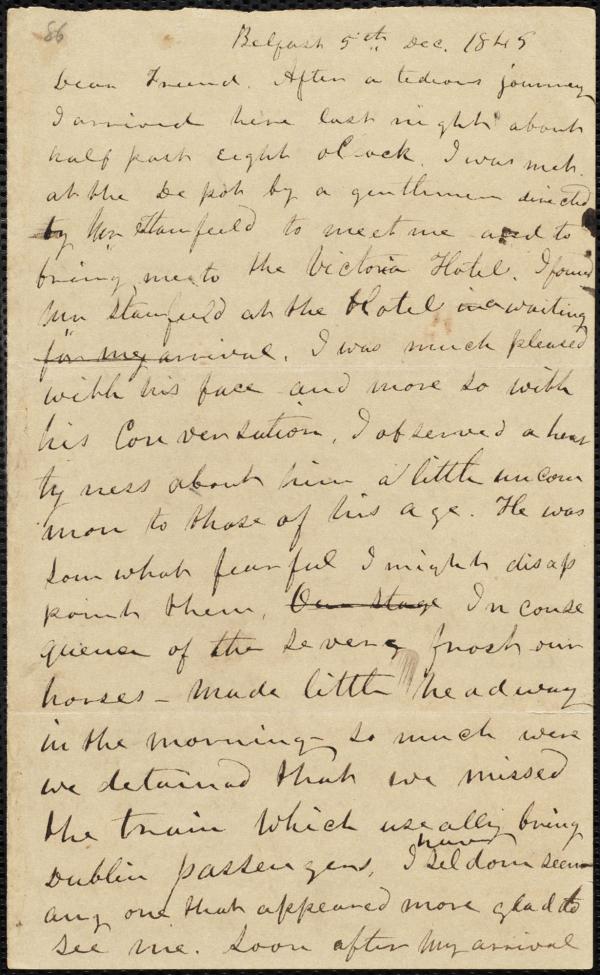 86
Belfast 5th Dec. 1845
Dear Friend. After a tedious journey
I arrived here last night about
half past eight oClock. I was met.
at the Depot by a gentlemen directed
by Mr Standfield to meet me and to
bring me to the Victoria Hotel. I found
Mr Standfield at the Hotel awaiting
for my arrival. I was much pleased
with his face and more so with
his Conversation, I observed a hear
ty ness about him a little uncom
mon to those of his age. He was
somwhat fearful I might disap
point them, Our stage In conse
quence of the severe frost our
horses - made little headway
in the morning - so much were
we detained that we missed
the train which useally bring
Dublin passengers, I have Seldom seen
any one that appeared more glad to
see me. Soon after my arrival